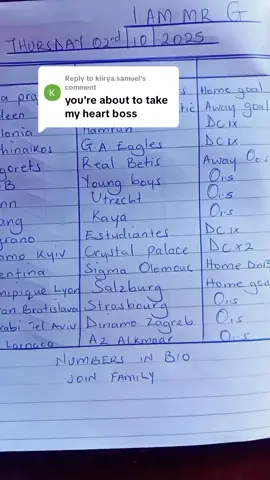 I AM MR G
THURSDAY 02nd | 10 | 2025
Reply to kiirya.samuel's comment
you're about to take my heart boss
Home goal
Away goal
Hamrun DC1X
G.A Eagles DC1X
Real Betis Away O1.5
Young boys O1.5
Utrecht O1.5
Kaya O1.5
Estudiantes DC1X
Kyiv Crystal Palace DCX2
Sigma Olomouc Home DnB
Lyon Salzburg Home goal
Bratislava Strasbourg O1.5
Tel Aviv Dinamo Zagreb O1.5
Larnaca AZ Alkmaar O1.5
NUMBERS IN BIO
JOIN FAMILY